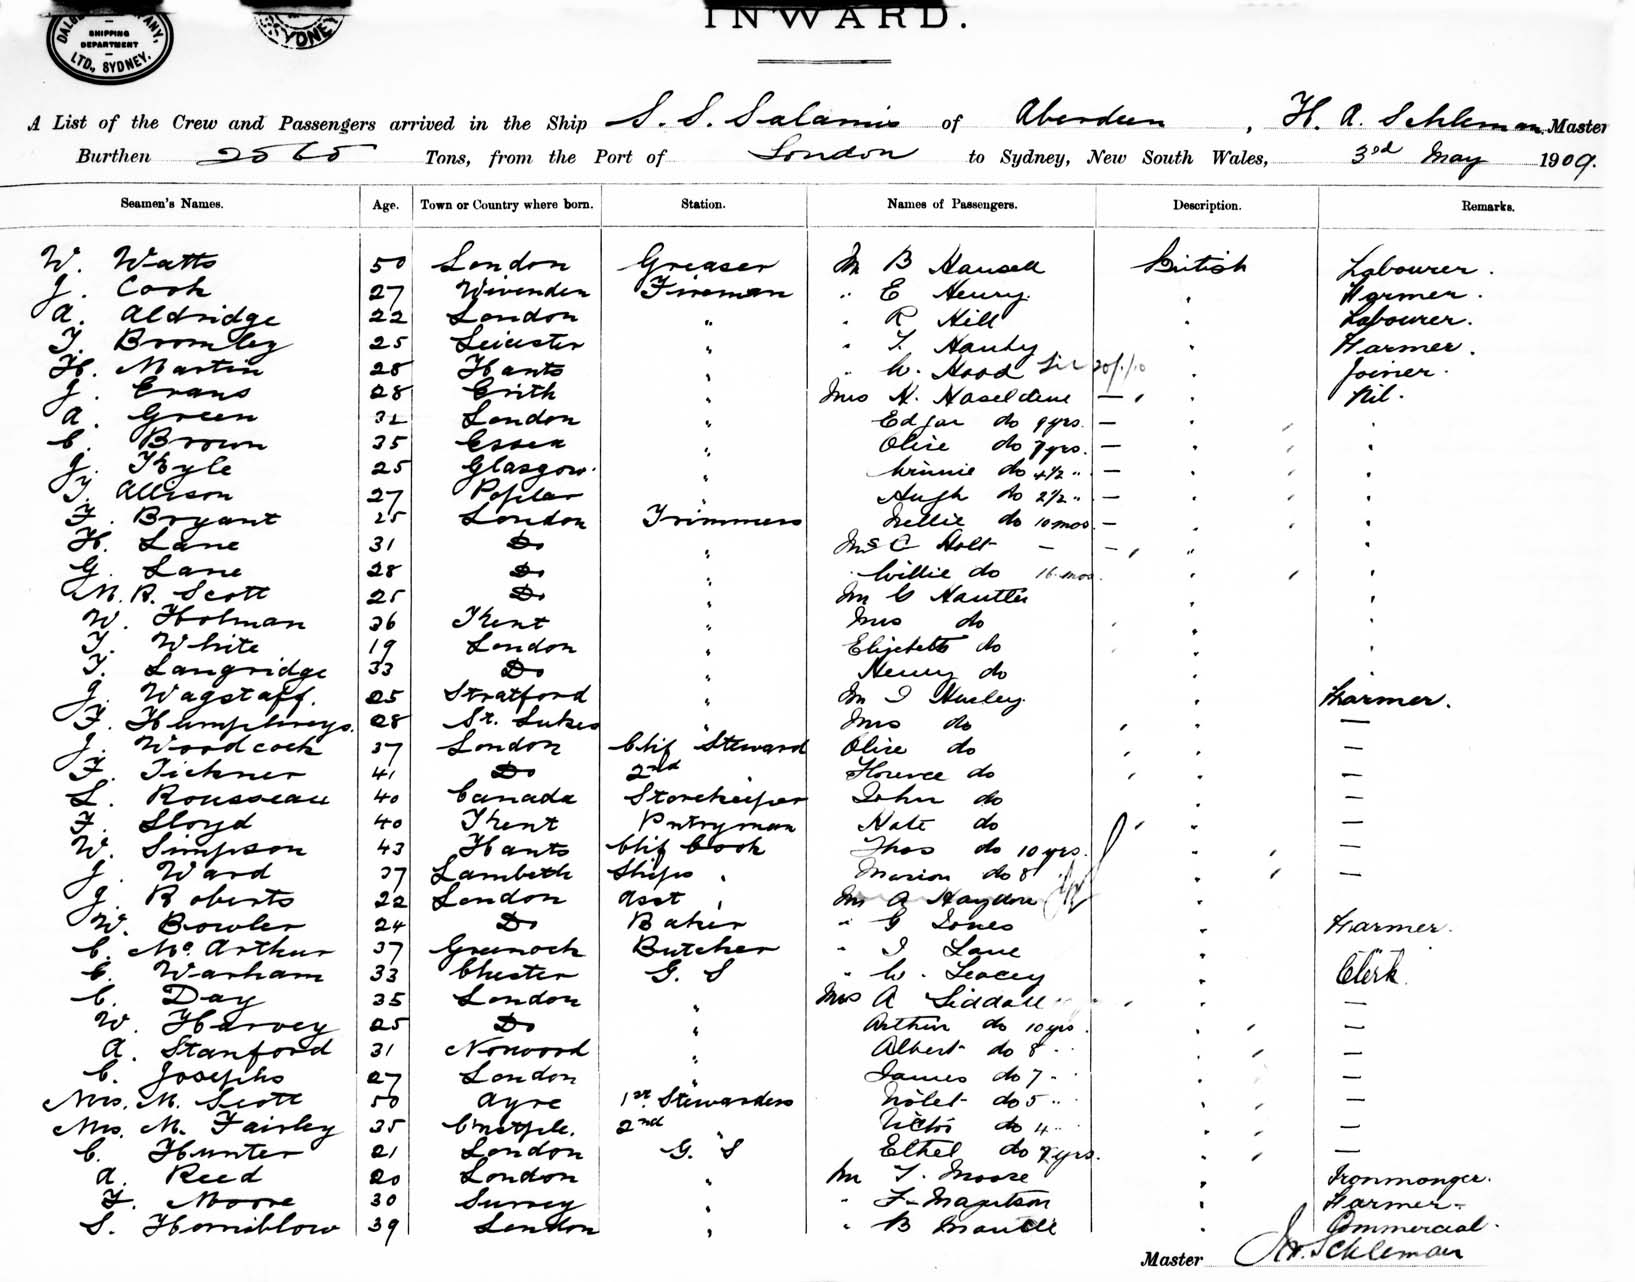 DALGETY COMPANY, LTD., SYDNEY. SHIPPING DEPARTMENT
SYDNEY
INWARD.
A List of the Crew and Passengers arrived in the Ship S. S. Salamis of Aberdeen, H. A. Schleman, Master
Burthen 2565 Tons, from the Port of London to Sydney, New South Wales, 3rd May 1909.
Seamen's Names. Age. Town or Country where born. Station. Names of Passengers. Description. Remarks.
W. Watts 50 London Greaser Mr B Hansell British Labourer.
J. Cook 27 Wivenden Fireman " E Henry " Farmer.
A. Aldridge 22 London " " R Hill " Labourer.
T. Bromley 25 Leicester " " T. Hanby " Farmer.
H. Martin 28 Hants " " W. Hood " Joiner.
J. Evans 28 Erith " Mrs H. Haseldene — " " Nil.
A. Green 32 London " Edgar do 9 yrs. — " "
C. Brown 35 Essex " Olive do 7 yrs. — " "
J. Kyle 25 Glasgow. " Winnie do 4½ " — " "
T. Allison 27 Poplar " Hugh do 2½ " — " "
F. Bryant 25 London Trimmers Nellie do 10 mos. — " "
H. Lane 31 Do " Mrs C Holt — — " "
G. Lane 28 Do " Willie do 16 mos. " "
M. R. Scott 25 Do " Mr G Hautler " "
W. Holman 36 Kent " Mrs do " "
T. White 19 London " Elizabeth do " "
T. Langridge 33 Do " Henry do " "
J. Wagstaff. 25 Stratford " Mr I Hurley " Farmer.
F. Humphreys. 28 St. Lukes " Mrs do " —
J. Woodcock 37 London Chif Steward Olive do " —
F. Tickner 41 Do 2nd Florence do " —
L. Rousseau 40 Canada Storekeeper John do " —
F. Lloyd 40 Kent Pntryman Kate do " —
W. Simpson 43 Hants Chif Cook Thos do 10 yrs. " —
J. Ward 37 Lambeth Ships " Marion do 8 " —
J. Roberts 22 London Asst " Mr A Haydon "
W. Bowler 24 Do Baker " G Jones " Farmer.
C. McArthur 37 Greenock Butcher " I Lane "
C. Warham 33 Chester G. S " W. Leacey " Clerk.
C. Day 35 London " Mrs A Siddall " —
W. Harvey 25 Do " Arthur do 10 yrs. " —
A. Stanford 31 Norwood " Albert do 8 " " —
C. Josephs 27 London " James do 7 " " —
Mrs. M. Scott 50 Ayre 1st Stewardess Violet do 5 " " —
Mrs. M. Fairley 35 2nd " Victor do 4 " " —
C. Hunter 21 London G. S Ethel do 7 yrs. " —
A. Reed 20 London " Mr T. Moore " Ironmonger.
F. Moore 30 Surrey " " F. " Farmer.
S. Horniblow 39 London " " B " Commercial.
Master Schleman